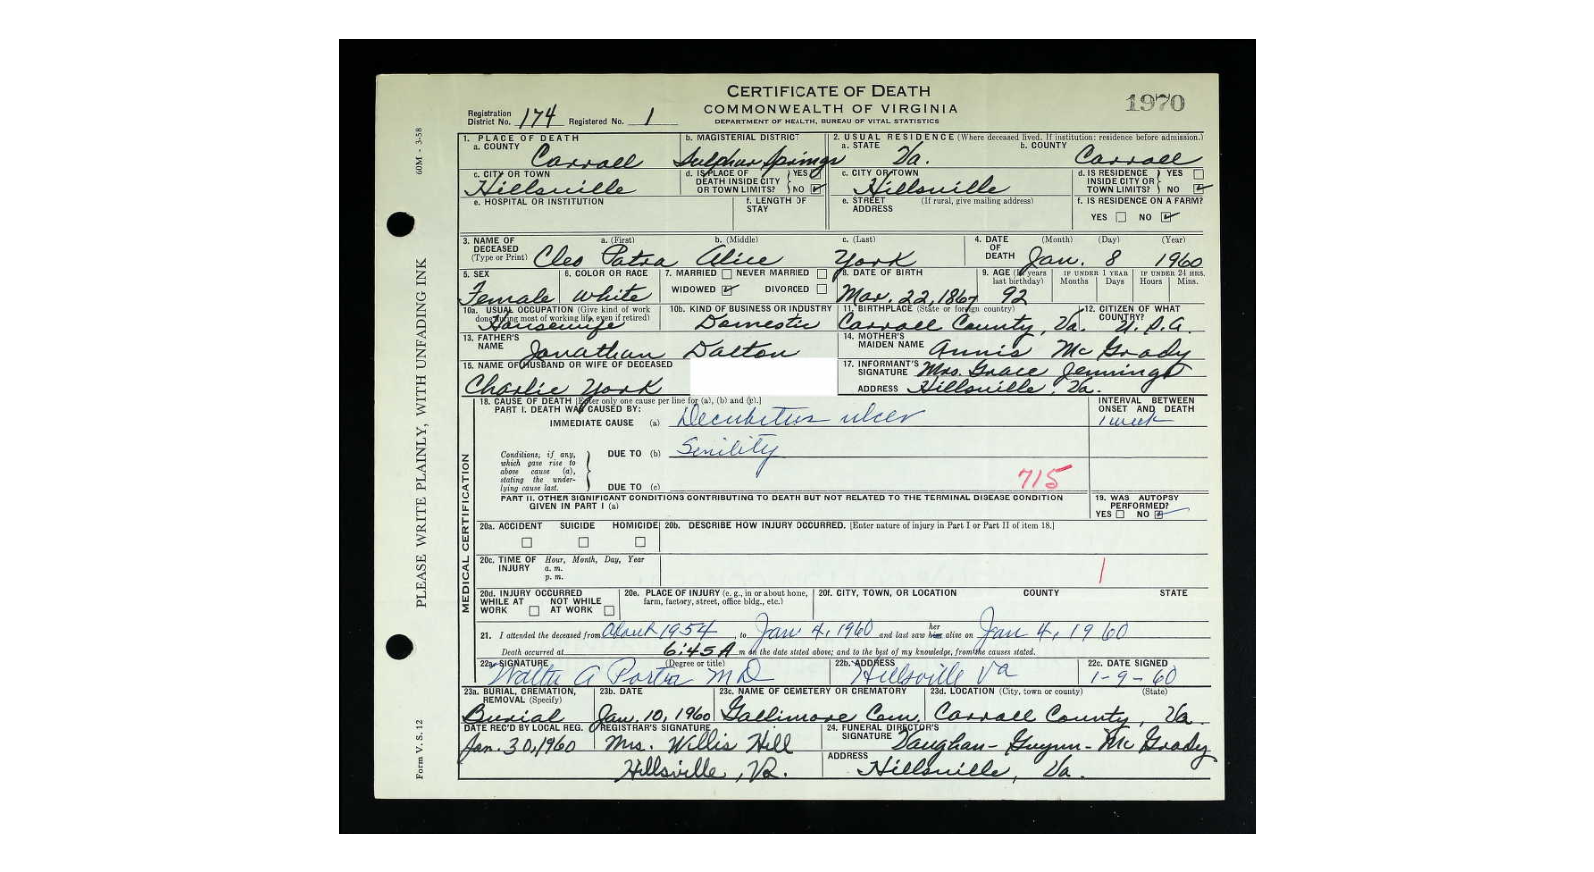 CERTIFICATE OF DEATH
COMMONWEALTH OF VIRGINIA
DEPARTMENT OF HEALTH, BUREAU OF VITAL STATISTICS
1970
Registration District No. 174 Registered No. 1
60M - 3-58
PLEASE WRITE PLAINLY, WITH UNFADING INK
Form V. S. 12
1. PLACE OF DEATH
a. COUNTY Carroll
b. MAGISTERIAL DISTRICT Sulphur Springs
2. USUAL RESIDENCE (Where deceased lived. If institution: residence before admission.)
a. STATE Va.
b. COUNTY Carroll
c. CITY OR TOWN Hillsville
d. IS PLACE OF DEATH INSIDE CITY OR TOWN LIMITS? YES NO
c. CITY OR TOWN Hillsville
d. IS RESIDENCE INSIDE CITY OR TOWN LIMITS? YES NO
e. HOSPITAL OR INSTITUTION
f. LENGTH OF STAY
e. STREET ADDRESS (If rural, give mailing address)
f. IS RESIDENCE ON A FARM? YES NO
3. NAME OF DECEASED (Type or Print)
a. (First) b. (Middle) c. (Last)
Cleo Patra Alice York
4. DATE OF DEATH (Month) (Day) (Year)
Jan. 8 1960
5. SEX Female
6. COLOR OR RACE White
7. MARRIED NEVER MARRIED
WIDOWED DIVORCED
8. DATE OF BIRTH Mar. 22, 1867
9. AGE (In years last birthday) 92
IF UNDER 1 YEAR Months Days
IF UNDER 24 HRS. Hours Mins.
10a. USUAL OCCUPATION (Give kind of work done during most of working life, even if retired) Housewife
10b. KIND OF BUSINESS OR INDUSTRY Domestic
11. BIRTHPLACE (State or foreign country) Carroll County, Va.
12. CITIZEN OF WHAT COUNTRY? U.S.A.
13. FATHER'S NAME Jonathan Dalton
14. MOTHER'S MAIDEN NAME Annis McGrady
15. NAME OF HUSBAND OR WIFE OF DECEASED
Charlie York
17. INFORMANT'S SIGNATURE Mrs. Grace Jennings
ADDRESS Hillsville, Va.
MEDICAL CERTIFICATION
18. CAUSE OF DEATH [Enter only one cause per line for (a), (b) and (c).]
PART I. DEATH WAS CAUSED BY:
IMMEDIATE CAUSE (a) Decubitus ulcer
INTERVAL BETWEEN ONSET AND DEATH
1 week
Conditions, if any, which gave rise to above cause (a), stating the underlying cause last.
DUE TO (b) Senility
DUE TO (c)
715
PART II. OTHER SIGNIFICANT CONDITIONS CONTRIBUTING TO DEATH BUT NOT RELATED TO THE TERMINAL DISEASE CONDITION GIVEN IN PART I (a)
19. WAS AUTOPSY PERFORMED? YES NO
20a. ACCIDENT SUICIDE HOMICIDE
20b. DESCRIBE HOW INJURY OCCURRED. [Enter nature of injury in Part I or Part II of item 18.]
20c. TIME OF INJURY Hour, Month, Day, Year
a. m.
p. m.
1
20d. INJURY OCCURRED
WHILE AT WORK NOT WHILE AT WORK
20e. PLACE OF INJURY (e. g., in or about home, farm, factory, street, office bldg., etc.)
20f. CITY, TOWN, OR LOCATION COUNTY STATE
21. I attended the deceased from About 1954, to Jan 4, 1960 and last saw her him alive on Jan 4, 1960
Death occurred at 6:45 A m on the date stated above; and to the best of my knowledge, from the causes stated.
22a. SIGNATURE (Degree or title) Walter A Porter MD
22b. ADDRESS Hillsville Va
22c. DATE SIGNED 1-9-60
23a. BURIAL, CREMATION, REMOVAL (Specify) Burial
23b. DATE Jan. 10, 1960
23c. NAME OF CEMETERY OR CREMATORY Gallimore Cem.
23d. LOCATION (City, town or county) (State) Carroll County, Va.
DATE REC'D BY LOCAL REG. Jan. 30, 1960
REGISTRAR'S SIGNATURE Mrs. Willis Hill
Hillsville, Va.
24. FUNERAL DIRECTOR'S SIGNATURE Vaughan-Guynn-McGrady
ADDRESS Hillsville, Va.